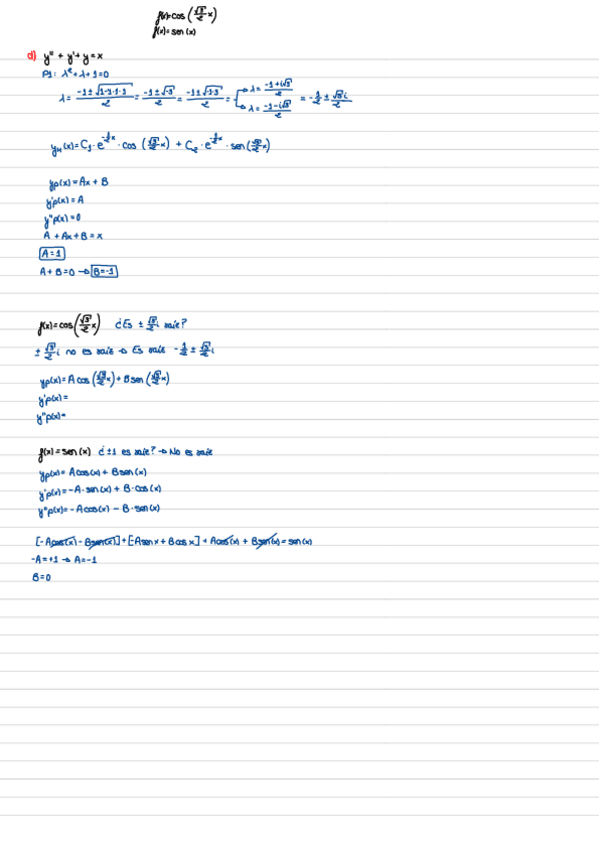 f(x)=cos(√3/2 x)
f(x)= sen(x)
d) y'' + y' + y = x
P1: λ² + λ + 1 = 0
λ = (-1 ± √(1-4·1·1))/2 = (-1 ± √-3)/2 = (-1 ± √1·3)/2 = λ = (-1+i√3)/2 λ = (-1-i√3)/2 = -1/2 ± √3/2 i
yH(x) = C1·e^(-1/2 x)·cos(√3/2 x) + C2·e^(-1/2 x)·sen(√3/2 x)
yp(x) = Ax + B
y'p(x) = A
y''p(x) = 0
A + Ax + B = x
A = 1
A + B = 0 → B = -1
f(x) = cos(√3/2 x) ¿Es ± √3/2 i raíz?
± √3/2 i no es raíz → Es raíz -1/2 ± √3/2 i
yp(x) = A cos(√3/2 x) + B sen(√3/2 x)
y'p(x) =
y''p(x) =
f(x) = sen(x) ¿±1 es raíz? → No es raíz
yp(x) = A cos(x) + B sen(x)
y'p(x) = -A·sen(x) + B·cos(x)
y''p(x) = -A cos(x) - B·sen(x)
[-A cos(x) - B sen(x)] + [-A sen x + B cos x] + A cos(x) + B sen(x) = sen(x)
-A = +1 → A = -1
B = 0